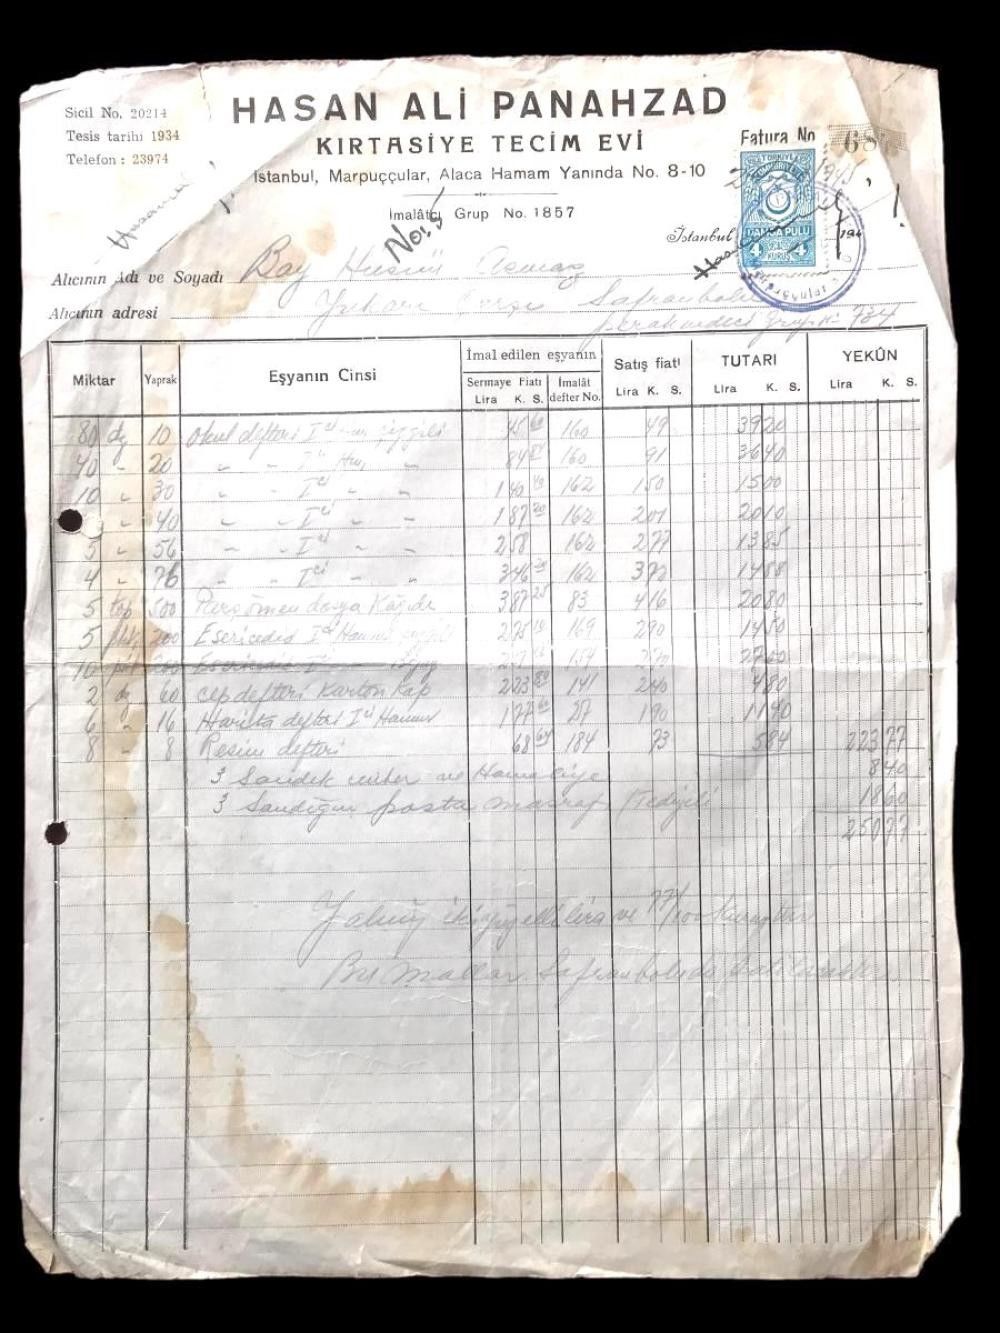 Sicil No. 20214
Tesis tarihi 1934
Telefon : 23974
HASAN ALİ PANAHZAD
KIRTASİYE TECİM EVİ
İstanbul, Marpuççular, Alaca Hamam Yanında No. 8-10
İmalâtçı Grup No. 1857
No: 5
Fatura No 68
1945
TÜRKİYE CUMHURİYETİ
DAMGA PULU
4 KURUŞ 4
İstanbul 194
Alıcının Adı ve Soyadı Bay Hüsnü Açmaz
Alıcının adresi Yukarı Çarşı Safranbolu
perakendeci Grup No 734
Miktar Yaprak Eşyanın Cinsi İmal edilen eşyanın Satış fiatı TUTARI YEKÛN
Sermaye Fiatı İmalât defter No.
Lira K. S. Lira K. S. Lira K. S. Lira K. S.
80 dz 10 Okul defteri Ici çizgili 45 60 160 49 3920
40 " 20 " " Ici Ham. " 84 160 91 3640
10 " 30 " " Ici " " 140 40 162 150 1500
" 40 " " Ici " " 187 20 162 201 2010
5 " 56 " " Ici " " 258 162 277 1385
4 " 76 " " Ici " " 346 162 372 1488
5 top 500 Parşömen dosya Kağıdı 387 25 83 416 2080
5 pkt 200 Esericedid Ici Hamur çizgili 275 10 169 290 1450
10 154 270 2700
2 dz 60 cep defteri Karton Kap 223 141 240 480
6 " 16 Harita defteri Ici Hamur 177 60 27 190 1140
8 " 8 Resim defteri 68 64 184 73 584 223 77
3 Sandık çember ve Hamaliye 840
3 Sandığın posta masrafı Tediyeli 1860
250 77
Yalnız ikiyüzelli lira ve 77/100 kuruştur
Bu mallar Safranboluda satılacaktır